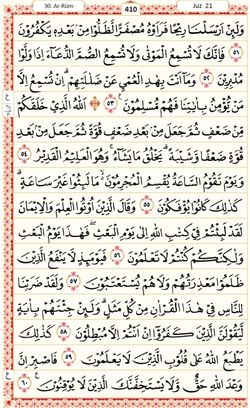 30. Ar-Rūm 410 Juz 21
وَلَئِنْ أَرْسَلْنَا رِيحًا فَرَأَوْهُ مُصْفَرًّا لَّظَلُّوا۟ مِنۢ بَعْدِهِۦ يَكْفُرُونَ
٥١ فَإِنَّكَ لَا تُسْمِعُ ٱلْمَوْتَىٰ وَلَا تُسْمِعُ ٱلصُّمَّ ٱلدُّعَآءَ إِذَا وَلَّوْا۟
مُدْبِرِينَ ٥٢ وَمَآ أَنتَ بِهَٰدِ ٱلْعُمْىِ عَن ضَلَٰلَتِهِمْ إِن تُسْمِعُ إِلَّا
مَن يُؤْمِنُ بِـَٔايَٰتِنَا فَهُم مُّسْلِمُونَ ٥٣ ٱللَّهُ ٱلَّذِى خَلَقَكُم
مِّن ضَعْفٍ ثُمَّ جَعَلَ مِنۢ بَعْدِ ضَعْفٍ قُوَّةً ثُمَّ جَعَلَ مِنۢ بَعْدِ
قُوَّةٍ ضَعْفًا وَشَيْبَةً يَخْلُقُ مَا يَشَآءُ وَهُوَ ٱلْعَلِيمُ ٱلْقَدِيرُ ٥٤
وَيَوْمَ تَقُومُ ٱلسَّاعَةُ يُقْسِمُ ٱلْمُجْرِمُونَ مَا لَبِثُوا۟ غَيْرَ سَاعَةٍ
كَذَٰلِكَ كَانُوا۟ يُؤْفَكُونَ ٥٥ وَقَالَ ٱلَّذِينَ أُوتُوا۟ ٱلْعِلْمَ وَٱلْإِيمَٰنَ
لَقَدْ لَبِثْتُمْ فِى كِتَٰبِ ٱللَّهِ إِلَىٰ يَوْمِ ٱلْبَعْثِ فَهَٰذَا يَوْمُ ٱلْبَعْثِ
وَلَٰكِنَّكُمْ كُنتُمْ لَا تَعْلَمُونَ ٥٦ فَيَوْمَئِذٍ لَّا يَنفَعُ ٱلَّذِينَ
ظَلَمُوا۟ مَعْذِرَتُهُمْ وَلَا هُمْ يُسْتَعْتَبُونَ ٥٧ وَلَقَدْ ضَرَبْنَا
لِلنَّاسِ فِى هَٰذَا ٱلْقُرْءَانِ مِن كُلِّ مَثَلٍ وَلَئِن جِئْتَهُم بِـَٔايَةٍ
لَّيَقُولَنَّ ٱلَّذِينَ كَفَرُوٓا۟ إِنْ أَنتُمْ إِلَّا مُبْطِلُونَ ٥٨ كَذَٰلِكَ
يَطْبَعُ ٱللَّهُ عَلَىٰ قُلُوبِ ٱلَّذِينَ لَا يَعْلَمُونَ ٥٩ فَٱصْبِرْ إِنَّ
وَعْدَ ٱللَّهِ حَقٌّ وَلَا يَسْتَخِفَّنَّكَ ٱلَّذِينَ لَا يُوقِنُونَ ٦٠